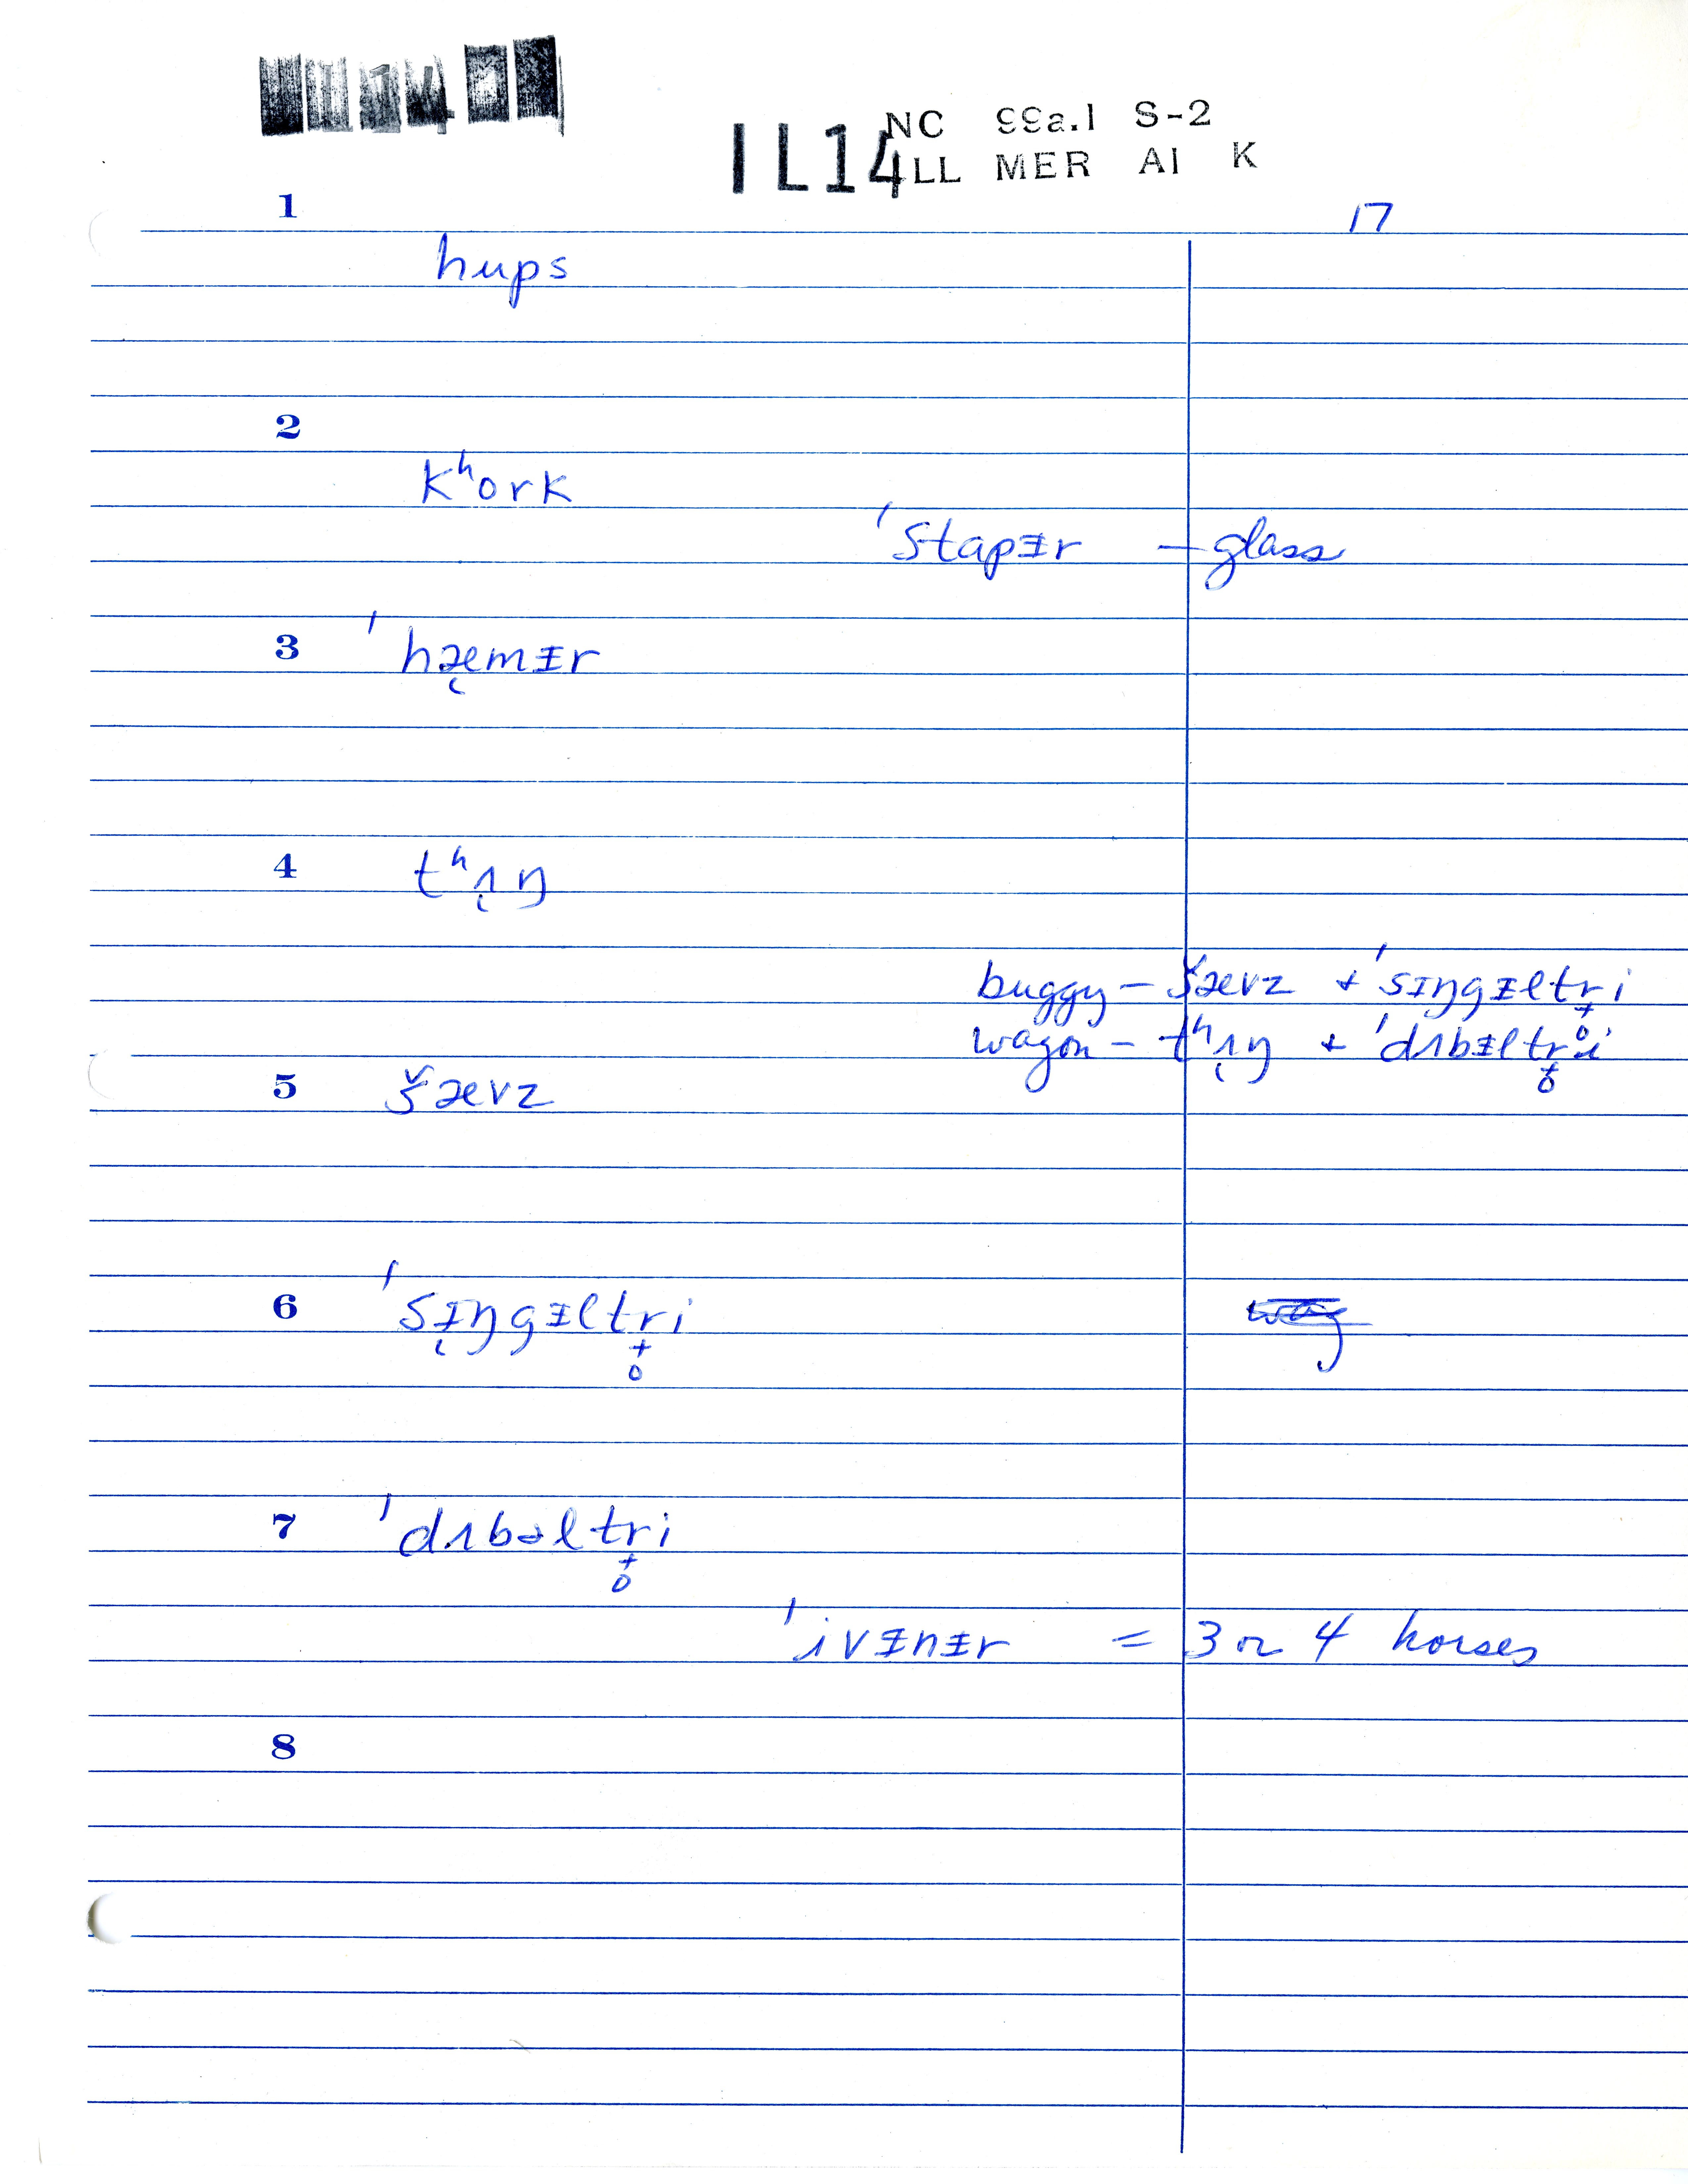 IL14
NC 99a.1 S-2
ALL MER AI K
1
17
hups
2
kʰork
ˈstapᵻr – glass
3 ˈhæ̨mᵻr
4 tʰʌ̨ŋ
buggy – šævz + ˈsɪŋgᵻltr̟̥i
wagon – tʰʌ̨ŋ + ˈdʌbᵻltr̟̥i
5 šævz
6 ˈsɪ̨ŋgᵻltr̟̥i
7 ˈdʌbəltr̟̥i
ˈivᵻnᵻr = 3 or 4 horses
8